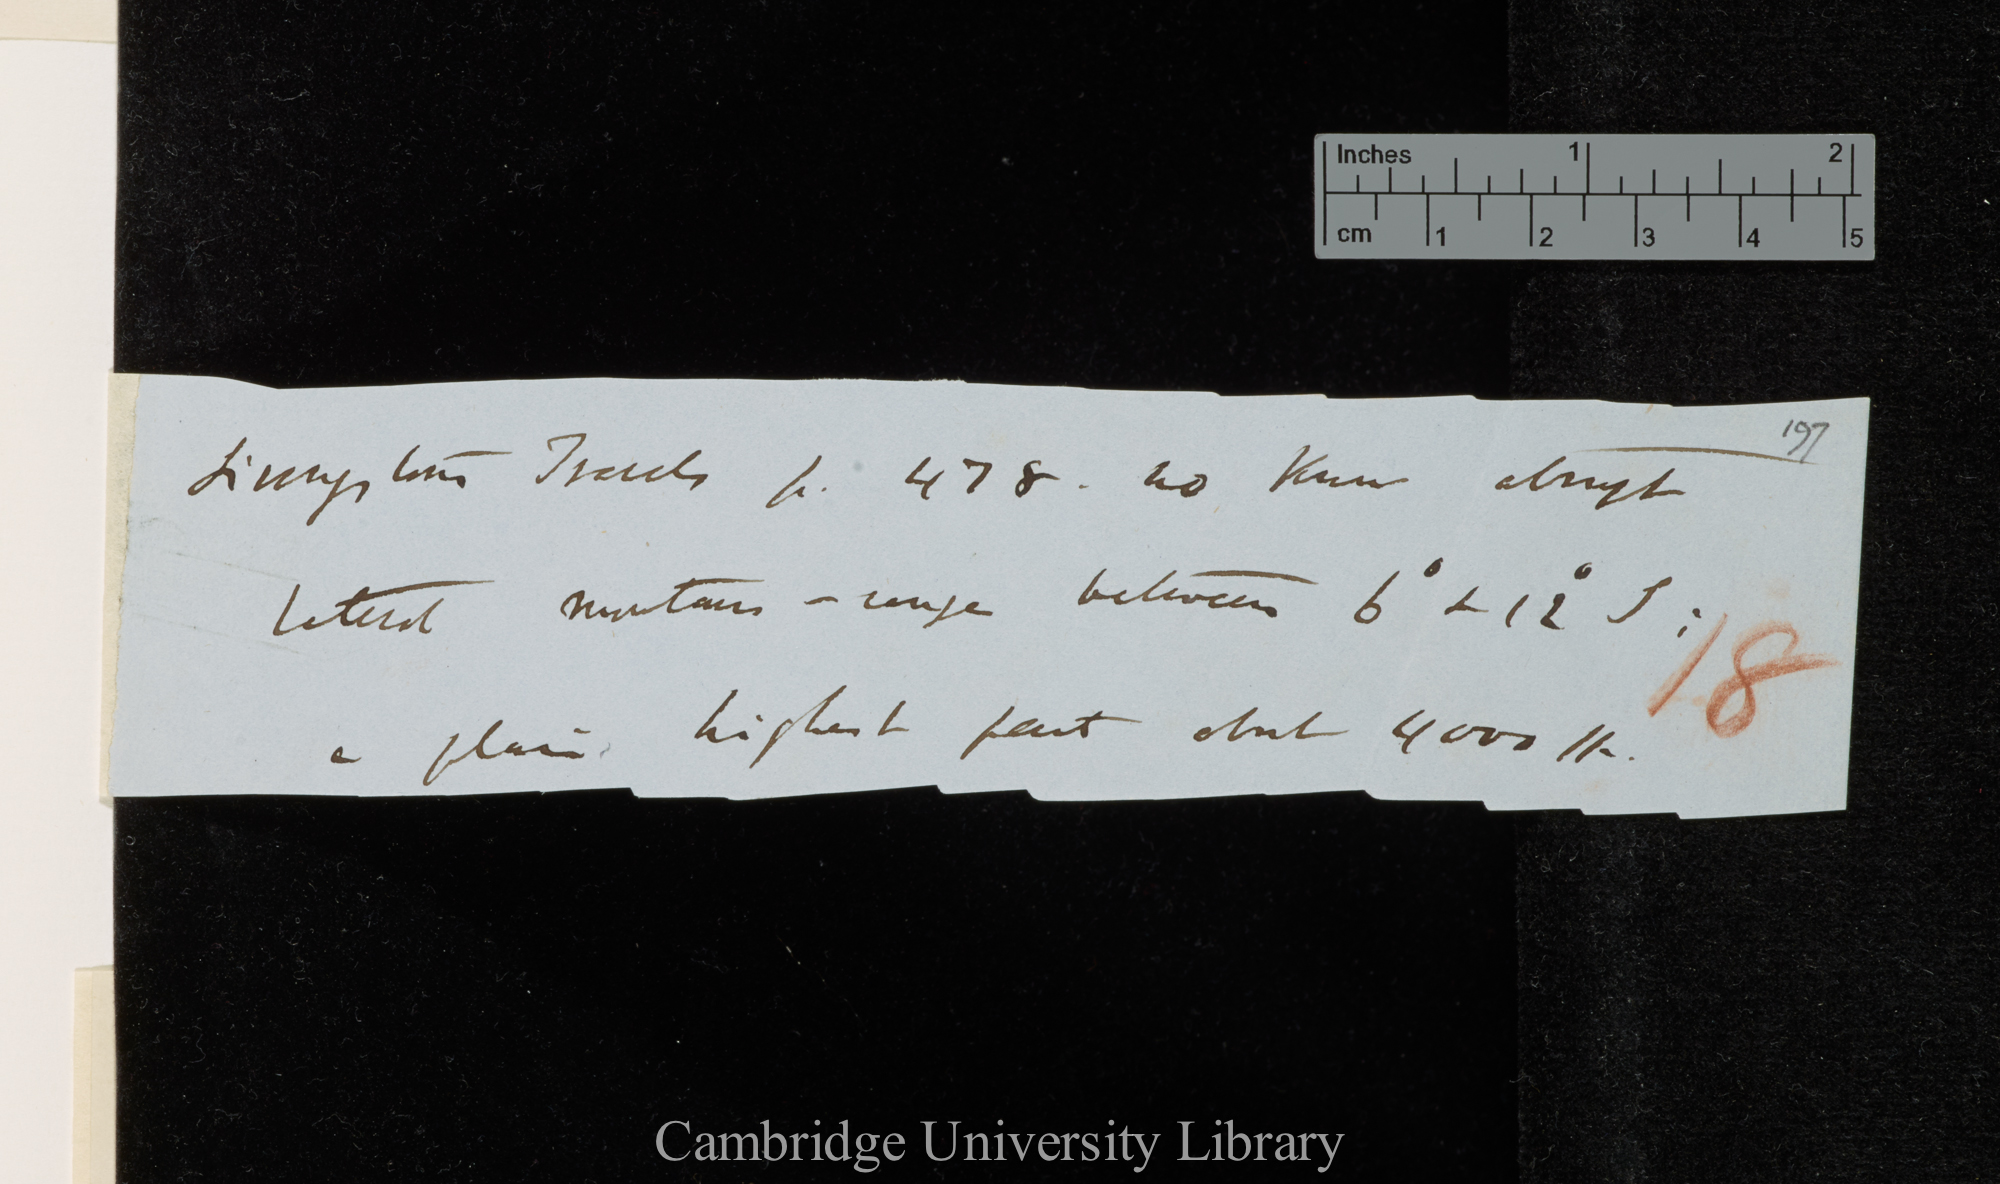 Inches 1 2
cm 1 2 3 4 5
197
Livingstone Travels p. 478. no known abrupt
lateral mountain-range between 6° & 12° S;
18
a plain highest part about 4000 ft.
Cambridge University Library